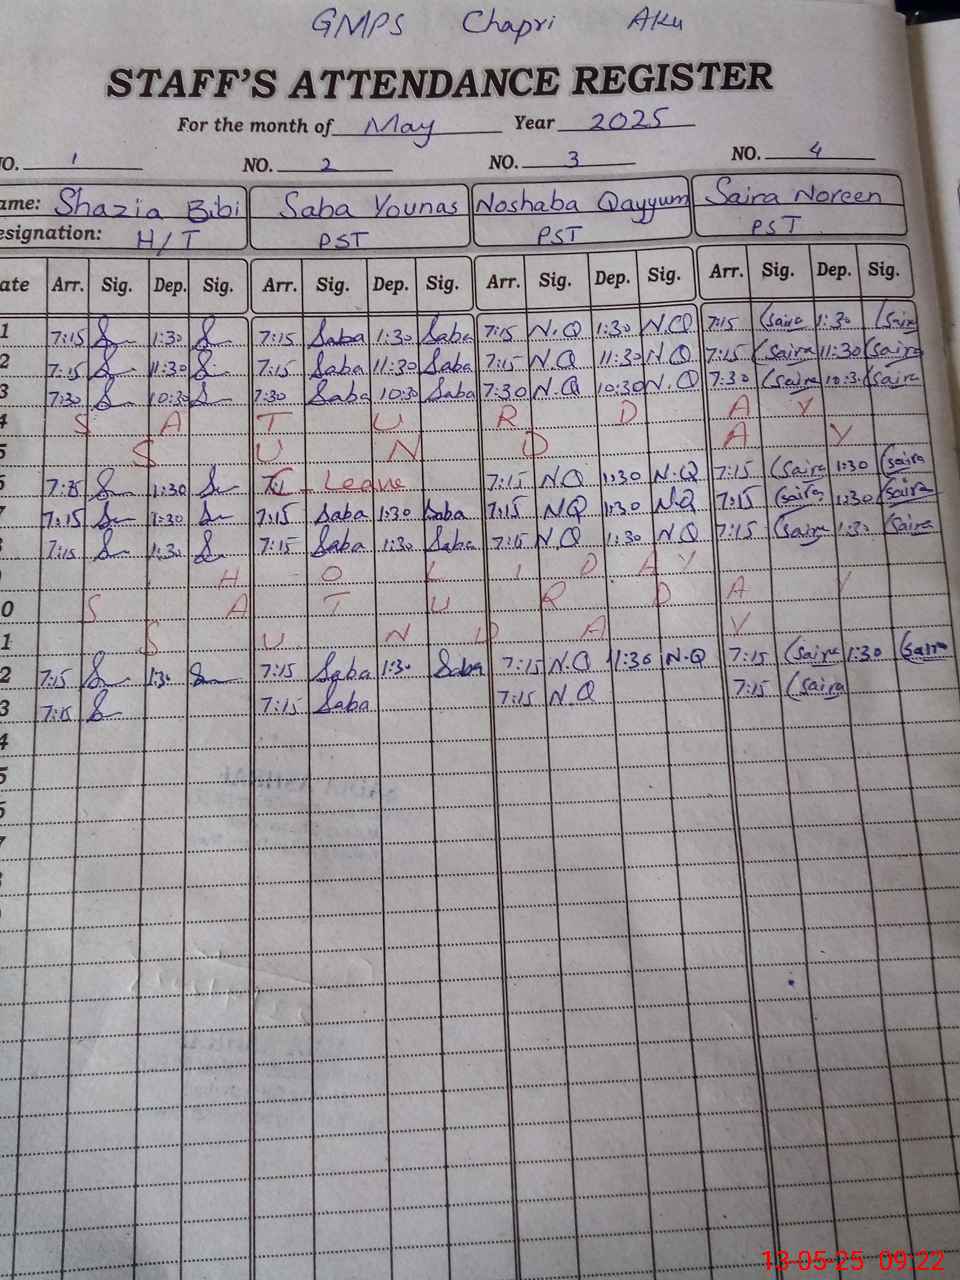 GMPS Chapri Aku
STAFF'S ATTENDANCE REGISTER
For the month of May Year 2025
NO. 1 NO. 2 NO. 3 NO. 4
ame: Shazia Bibi Saba Younas Noshaba Qayyum Saira Noreen
esignation: H/T PST PST PST
ate Arr. Sig. Dep. Sig. Arr. Sig. Dep. Sig. Arr. Sig. Dep. Sig. Arr. Sig. Dep. Sig.
1 7:15 1:30 7:15 Saba 1:30 Saba 7:15 N.Q 1:30 N.Q 7:15 Saira 1:30 Saira
2 7:15 11:30 7:15 Saba 11:30 Saba 7:15 N.Q 11:30 N.Q 7:15 Saira 11:30 Saira
3 7:30 10:30 7:30 Saba 10:30 Saba 7:30 N.Q 10:30 N.Q 7:30 Saira 10:30 Saira
4 S A T U R D A Y
5 S U N D A Y
7:15 1:30 Leave 7:15 N.Q 1:30 N.Q 7:15 Saira 1:30 Saira
7 7:15 1:30 7:15 Saba 1:30 Saba 7:15 NQ 1:30 N.Q 7:15 Saira 1:30 Saira
7:15 1:30 7:15 Saba 1:30 Saba 7:15 N.Q 1:30 N.Q 7:15 Saira 1:30 Saira
H O L I D A Y
0 S A T U R D A Y
1 S U N D A Y
2 7:15 1:30 7:15 Saba 1:30 Saba 7:15 N.Q 11:30 N.Q 7:15 Saira 1:30 Saira
3 7:15 7:15 Saba 7:15 N.Q 7:15 Saira
4
5
13-05-25 09:22